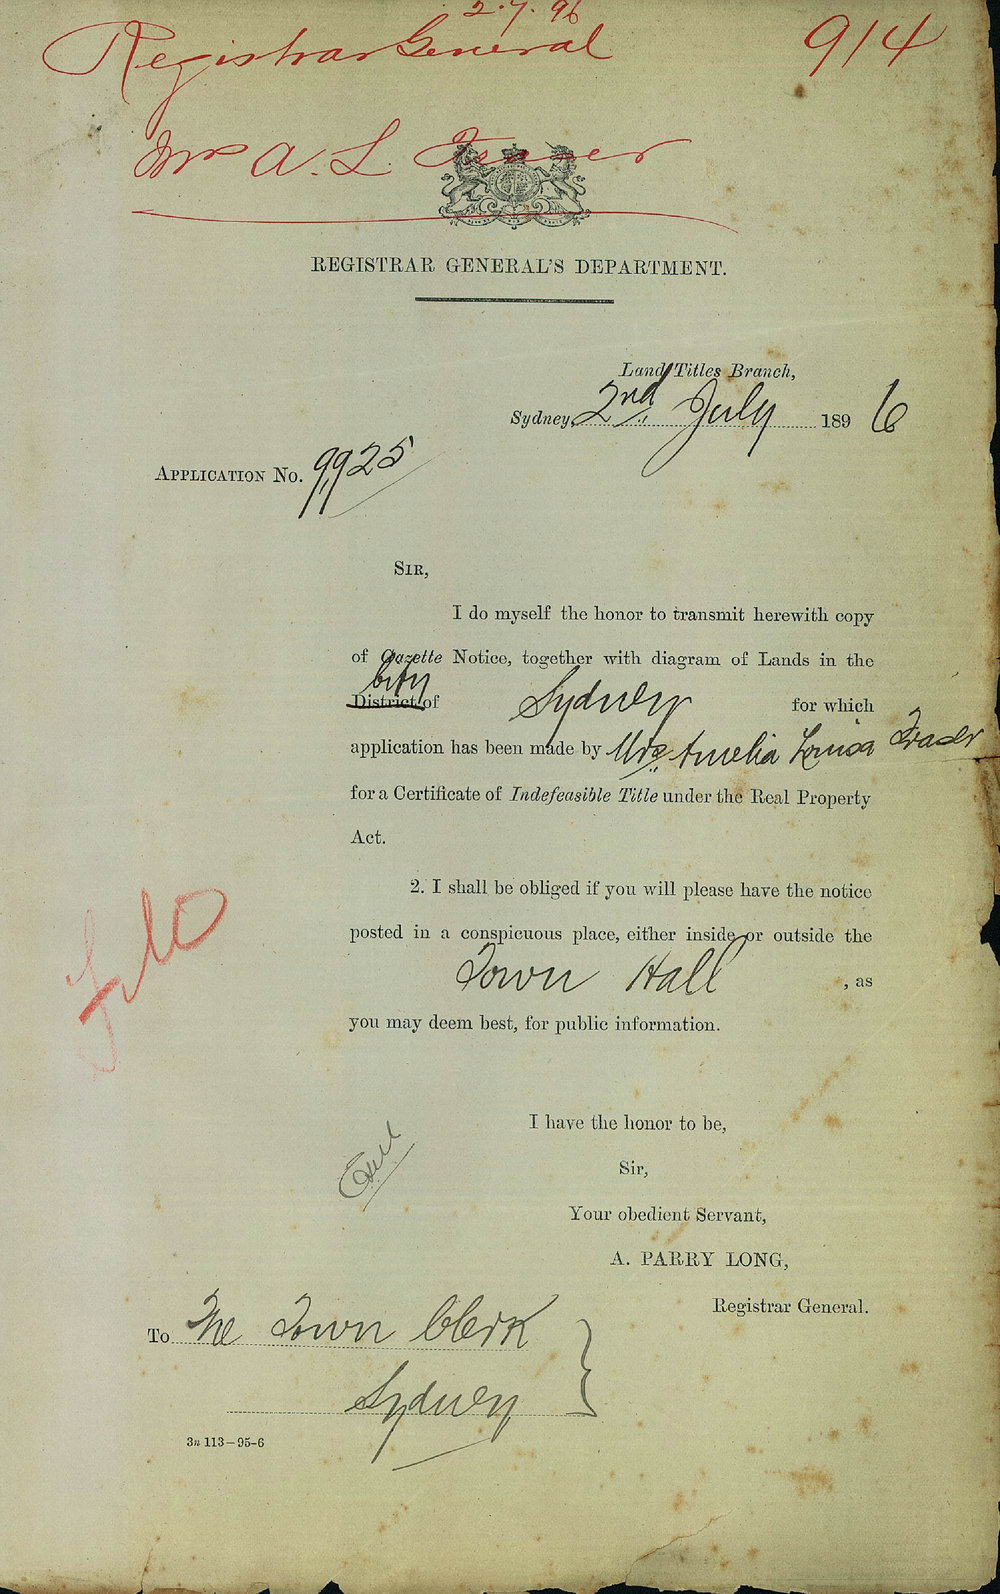 2.7.96
Registrar General 914
Mrs A. L. Fraser
REGISTRAR GENERAL'S DEPARTMENT.
Land Titles Branch,
Sydney, 2nd July 1896
APPLICATION No. 9925
SIR,
I do myself the honor to transmit herewith copy
of Gazette Notice, together with diagram of Lands in the
City
District of Sydney for which
application has been made by Mrs Amelia Louisa Fraser
for a Certificate of Indefeasible Title under the Real Property
Act.
2. I shall be obliged if you will please have the notice
posted in a conspicuous place, either inside or outside the
Town Hall, as
you may deem best, for public information.
File
I have the honor to be,
Sir,
Your obedient Servant,
A. PARRY LONG,
Registrar General.
To The Town Clerk
Sydney
3n 113—95-6